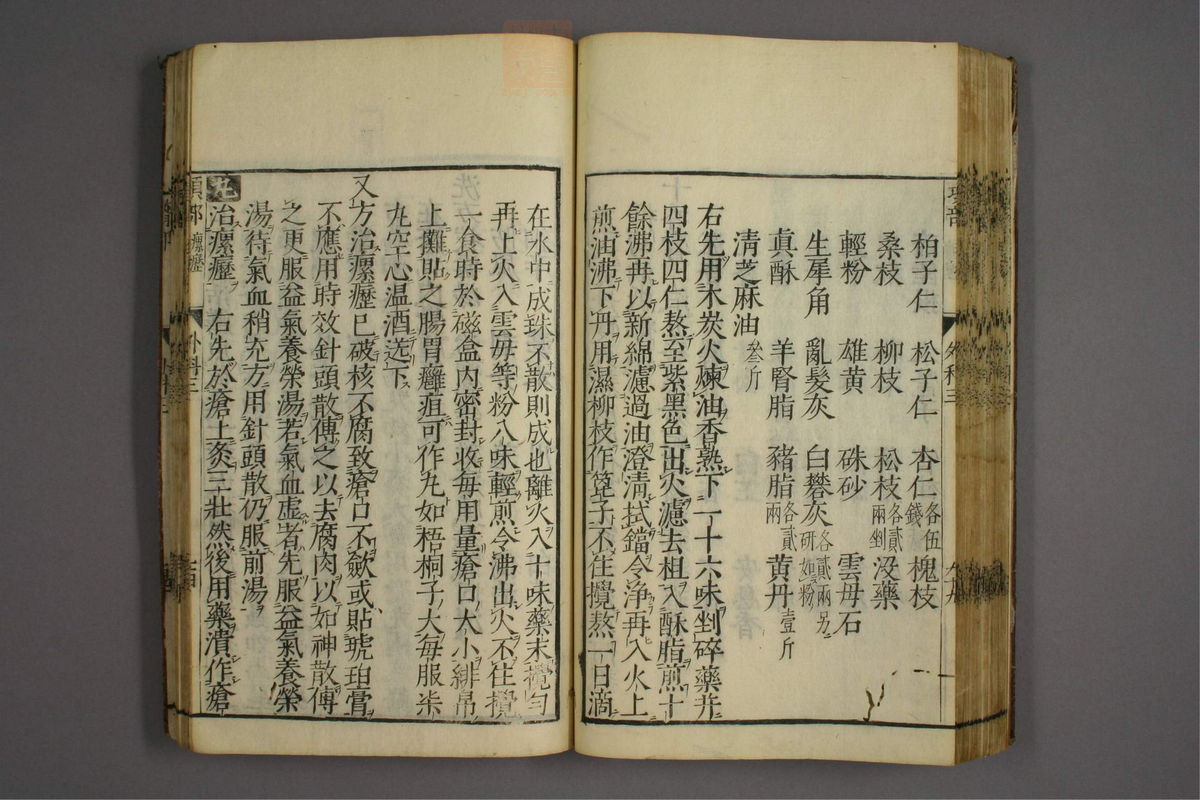 柏子仁 松子仁 杏仁各伍錢 槐枝
桑枝 柳枝 松枝各貳兩剉 沒藥
輕粉 雄黃 硃砂 雲母石
生犀角 亂髮灰 白礬灰各貳兩另研如粉
真酥 羊腎脂 豬脂各貳兩 黃丹壹斤
清芝麻油叁斤
右先用木炭火煉油香熟下一十六味剉碎藥并
四枝四仁熬至紫黑色出火濾去柤入酥脂煎十
餘沸再以新綿濾過油澄清拭鐺令淨再入火上
煎油沸下丹用濕柳枝作篦子不住攪熬一日滴
在水中成珠不散則成也離火入十味藥末攪勻
再上火入雲母等粉八味輕煎令沸出火不住攪
一食時於磁盒内密封收每用量瘡口大小緋帛
上攤貼之腸胃癰疽可作丸如梧桐子大每服柒
丸空心温酒送下
又方治瘰癧已破核不腐致瘡口不歛或貼琥珀膏
不應用時效針頭散傅之以去腐肉以如神散傅
之更服益氣養榮湯若氣血虛者先服益氣養榮
湯待氣血稍充方用針頭散仍服前湯
灸治瘰癧 右先於瘡上灸三壯然後用藥潰作瘡
項部 瘰癧 外科三